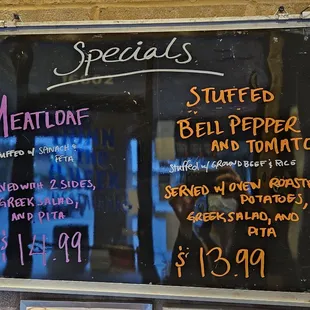 Specials
MEATLOAF
STUFFED w/ SPINACH &
FETA
SERVED WITH 2 SIDES,
GREEK SALAD,
AND PITA
$14.99
STUFFED
BELL PEPPER
AND TOMATO
Stuffed w/ GROUND BEEF & RICE
SERVED W/ OVEN ROASTED
POTATOES,
GREEK SALAD, AND
PITA
$13.99